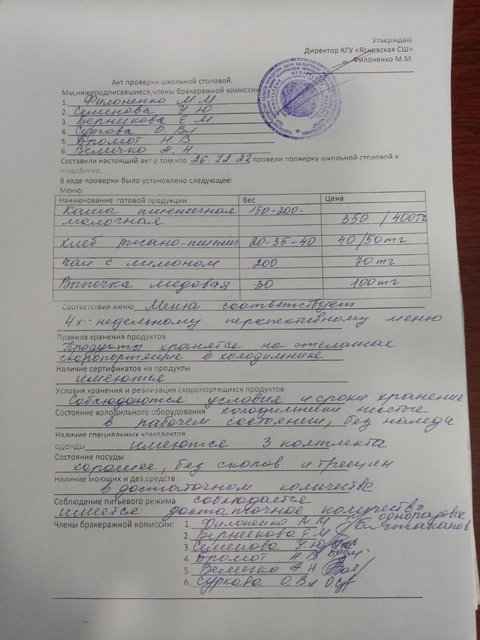 Утверждаю
Директор КГУ «Ясновская СШ»
Филоненко М.М.
Акт проверки школьной столовой.
Мы,нижеподписавшиеся,члены бракеражной комиссии
1. Филоненко М М
2. Семенова У Ю
3. Верникова Е М
4. Суркова О Вл
5. Бромот Н В
6. Величко А Н
Составили настоящий акт о том,что 26.12.22 провели проверку школьной столовой и
пищеблока.
В ходе проверки было установлено следующее:
Меню:
Наименование готовой продукции Вес Цена
Каша пшеничная молочная 150-200- 350/400тг
Хлеб ржано-пшенич. 20-35-40 40/50тг
Чай с лимоном 200 70тг
Выпечка медовая 30 100тг
Соответствие меню Меню соответствует
4х-недельному перспективному меню
Правила хранения продуктов
Продукты хранятся на стеллажах
скоропортящие в холодильнике
Наличие сертификатов на продукты
имеются
Условия хранения и реализация скоропортящихся продуктов
Соблюдаются условие и сроки хранение
Состояние холодильного оборудования холодильники чистые
в рабочем состоянии, без наледи
Наличие специальных комплектов
одежды имеются 3 комплекта
Состояние посуды
хорошее, без сколов и трещин
Наличие моющих и дез.средств
в достаточном количестве
Соблюдение питьевого режима соблюдается
имеется достаточное количество одноразовых
стаканов
Члены бракеражной комиссии:
1. Филоненко М М
2. Верникова Е М
3. Семенова У Ю
4. Бромот Н В
5. Величко А Н
6. Суркова О.Вл